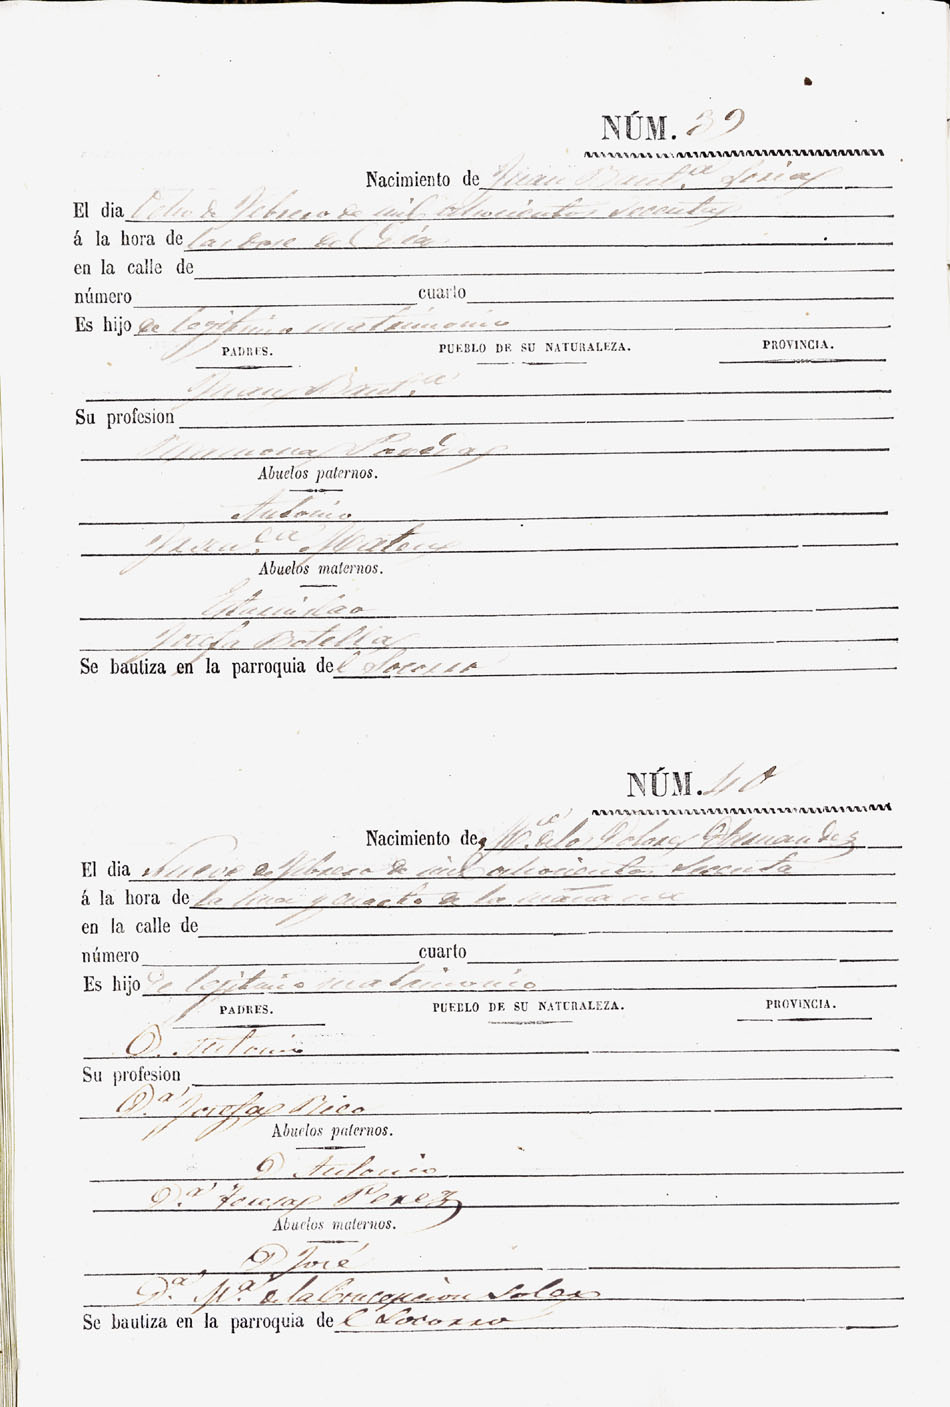 NÚM. 39
Nacimiento de Juan Baut.ª Soria
El dia Ocho de Febrero de mil ochocientos secenta
á la hora de las doce del Dia
en la calle de
número cuarto
Es hijo de legitimo matrimonio
PADRES. PUEBLO DE SU NATURALEZA. PROVINCIA.
Juan Baut.ª
Su profesion
Ramona
Abuelos paternos.
Antonio
Fran.ca Mateu
Abuelos maternos.
Estanislao
Josefa Botella
Se bautiza en la parroquia del Socorro
NÚM. 40
Nacimiento de M.ª de los Dolores Hernandez
El dia Nueve de Febrero de mil ochocientos secenta
á la hora de la una y cuarto de la mañana
en la calle de
número cuarto
Es hijo de legitimo matrimonio
PADRES. PUEBLO DE SU NATURALEZA. PROVINCIA.
D. Antonio
Su profesion
D.ª Josefa Rico
Abuelos paternos.
D Antonio
D.ª Teresa Perez
Abuelos maternos.
D José
D.ª M.ª de la Concepcion Soler
Se bautiza en la parroquia de el Socorro